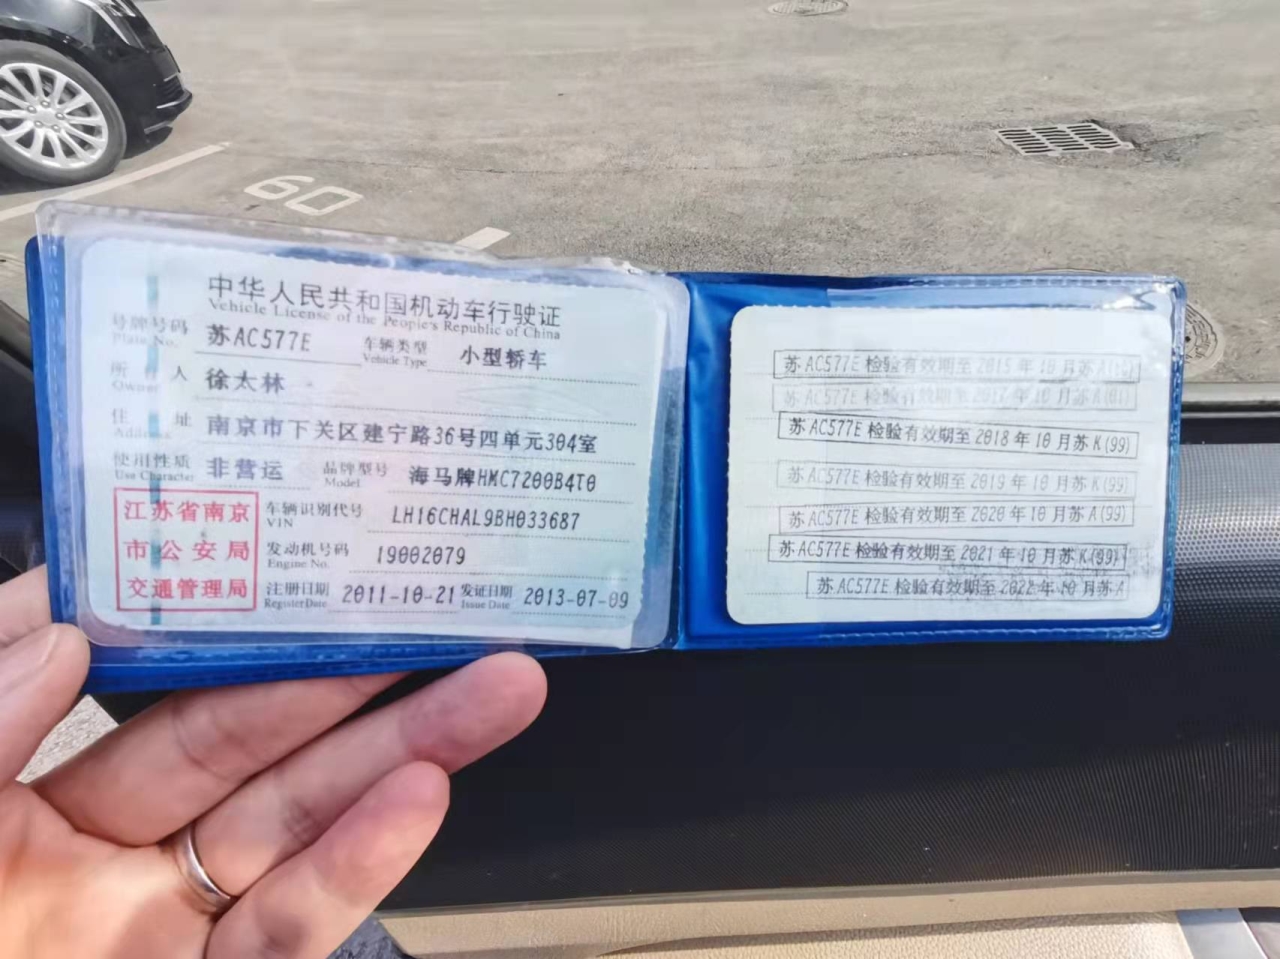 60
中华人民共和国机动车行驶证
Vehicle License of the People's Republic of China
号牌号码 苏AC577E 车辆类型 小型轿车
Plate No. Vehicle Type
所有人 徐太林
Owner
住址 南京市下关区建宁路36号四单元304室
Address
使用性质 非营运 品牌型号 海马牌HMC7200B4T0
Use Character Model
江苏省南京
市公安局
交通管理局
车辆识别代号 LH16CHAL9BH033687
VIN
发动机号码 19002079
Engine No.
注册日期 2011-10-21 发证日期 2013-07-09
Register Date Issue Date
苏AC577E 检验有效期至 2015 年 10 月苏A
苏AC577E 检验有效期至 2017 年 10 月苏A(01)
苏AC577E 检验有效期至 2018 年 10 月苏K(99)
苏AC577E 检验有效期至 2019 年 10 月苏K(99)
苏AC577E 检验有效期至 2020 年 10 月苏A(99)
苏AC577E 检验有效期至 2021 年 10 月苏K(99)
苏AC577E 检验有效期至 2022 年 10 月苏A